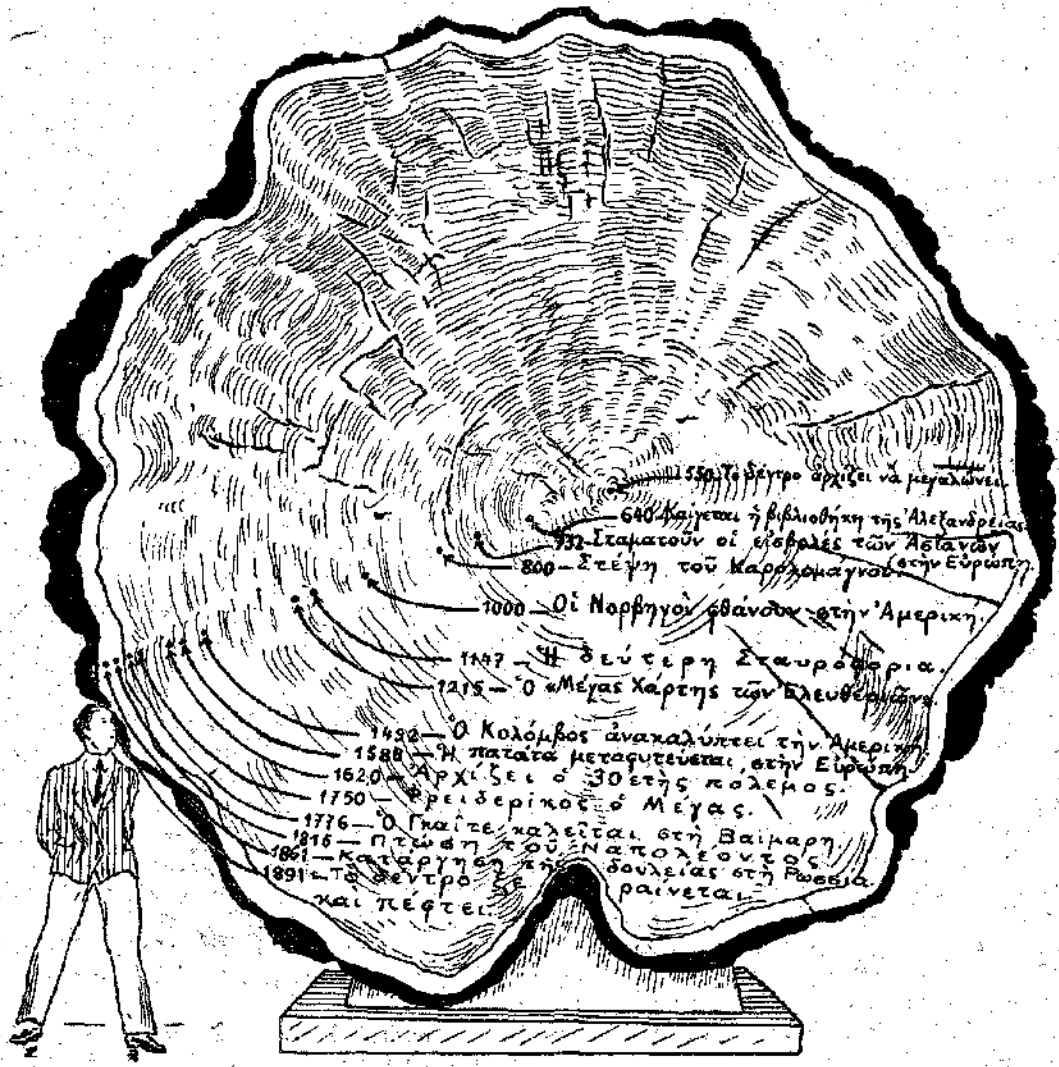 550 – Τὸ δέντρο ἀρχίζει νὰ μεγαλώνει.
640 – Καίγεται ἡ βιβλιοθήκη τῆς Ἀλεξανδρείας
732 – Σταματοῦν οἱ εἰσβολὲς τῶν Ἀσιανῶν
στὴν Εὐρώπη.
800 – Στέψη τοῦ Καρολομάγνου.
1000 – Οἱ Νορβηγοὶ φθάνουν στὴν Ἀμερική.
1147 – Ἡ δεύτερη Σταυροφορία.
1215 – Ὁ «Μέγας Χάρτης τῶν Ἐλευθεριῶν».
1492 – Ὁ Κολόμβος ἀνακαλύπτει τὴν Ἀμερική.
– Ἡ πατάτα μεταφυτεύεται στὴν Εὐρώπη.
1620 – Ἀρχίζει ὁ 30ετὴς πόλεμος.
1750 – Φρειδερῖκος ὁ Μέγας.
1776 – Ὁ Γκαῖτε καλεῖται στὴ Βαϊμάρη.
– Πτώση τοῦ Ναπολέοντος
1861 – Κατάργηση τῆς δουλείας στὴ Ρωσσία.
1891 – Τὸ δέντρο
καὶ πέφτει.